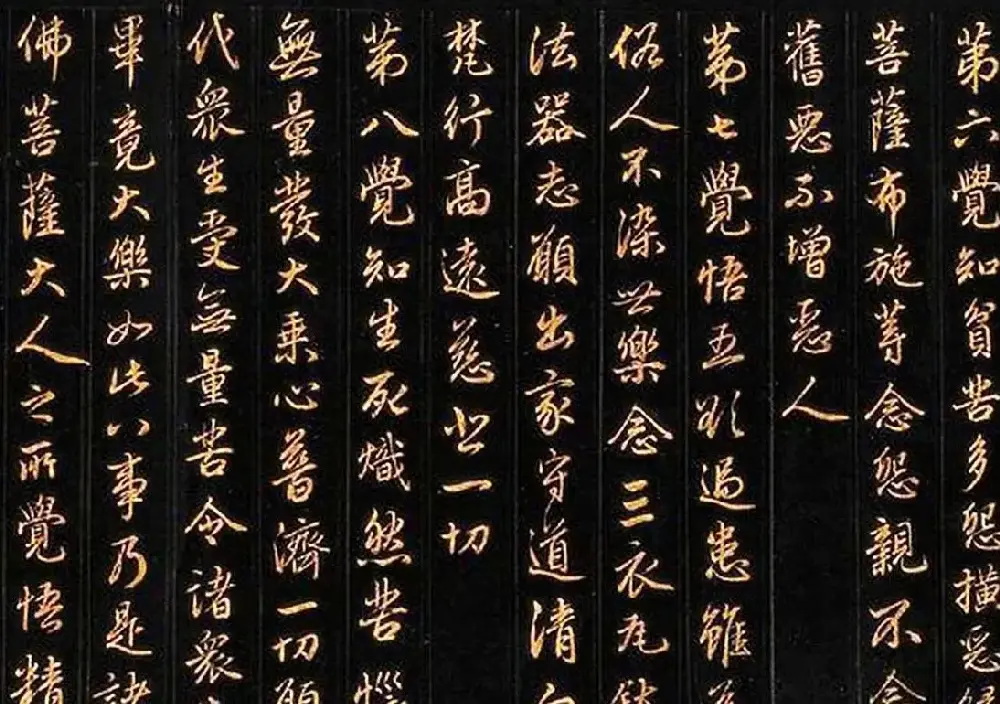 第六覺知貧苦多怨橫惡緣
菩薩布施等念怨親不念
舊惡不增惡人
第七覺悟五欲過患雖為
俗人不染世樂念三衣瓦鉢
法器志願出家守道清白
梵行高遠慈悲一切
第八覺知生死熾然苦惱
無量發大乘心普濟一切願
代眾生受無量苦令諸眾
畢竟大樂如此八事乃是諸
佛菩薩大人之所覺悟精